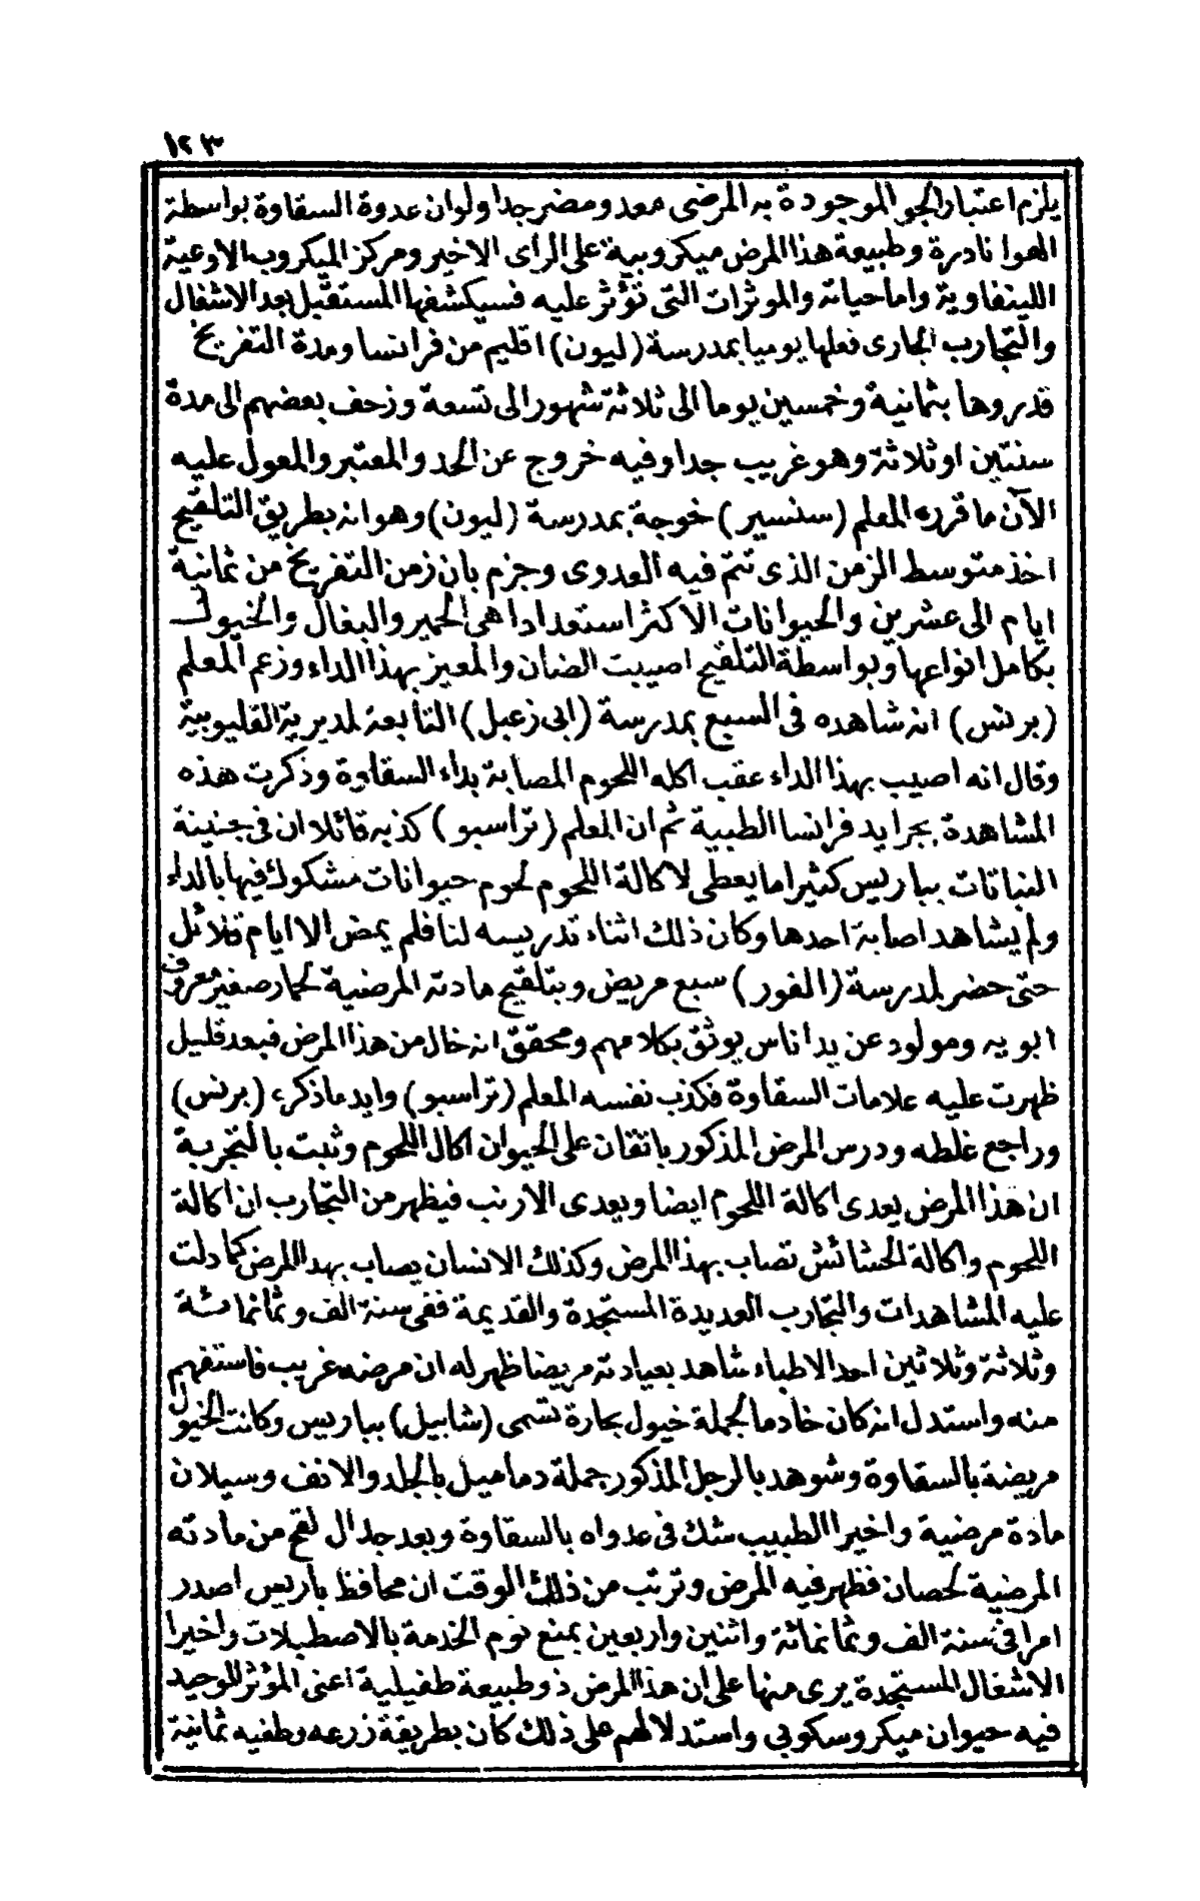 ١٢٣
يلزم اعتبار الجو الموجودة به المرضى معد ومضر جدا ولوان عدوة السقاوة بواسطة
الهوا نادرة وطبيعة هذا المرض ميكروبية على الراى الاخير ومركز الميكروب الاوعية
اللينفاوية واما حياته والموثرات التى تؤثر عليه فسيكشفها المستقبل بعد الاشغال
والتجارب الجارى فعلها يوميا بمدرسة (ليون) اقليم من فرانسا ومدة التفريخ
قدروها بثمانية وخمسين يوما الى ثلاثة شهور الى تسعة وزحف بعضهم الى مدة
سنتين او ثلاثة وهو غريب جدا وفيه خروج عن الحد والمعتبر والمعول عليه
الآن ما قرره المعلم (سنسير) خوجة بمدرسة (ليون) وهو انه بطريق التلقيح
اخذ متوسط الزمن الذى تتم فيه العدوى وجزم بان زمن التفريخ من ثمانية
ايام الى عشرين والحيوانات الاكثر استعدادا هى الحمير والبغال والخيول
بكامل انواعها وبواسطة التلقيح اصيبت الضان والمعيز بهذا الداء وزعم المعلم
(برنس) انه شاهده فى السبع بمدرسة (ابى زعبل) التابعة لمديرية القليوبية
وقال انه اصيب بهذا الداء عقب اكله اللحوم المصابة بداء السقاوة وذكرت هذه
المشاهدة بجرايد فرانسا الطبية ثم ان المعلم (تراسبو) كذبه قائلا ان فى جنينة
النباتات بباريس كثيرا ما يعطى لاكالة اللحوم لحوم حيوانات مشكوك فيها بالداء
ولم يشاهد اصابة احدها وكان ذلك اثناء تدريسه لنا فلم يمض الا ايام قلائل
حتى حضر لمدرسة (الفور) سبع مريض وبتلقيح مادته المرضية لحمار صغير معروف
ابويه ومولود عن يد اناس يوثق بكلامهم ومحقق انه خال من هذا المرض فبعد قليل
ظهرت عليه علامات السقاوة فكذب نفسه المعلم (تراسبو) وايد ماذكره (برنس)
وراجع غلطه ودرس المرض المذكور باتقان على الحيوان اكال اللحوم وثبت بالتجربة
ان هذا المرض يعدى اكالة اللحوم ايضا ويعدى الارنب فيظهر من التجارب ان اكالة
اللحوم واكالة الحشائش تصاب بهذا المرض وكذلك الانسان يصاب بهدا المرض كما دلت
عليه المشاهدات والتجارب العديدة المستجدة والقديمة ففى سنة الف وثمانمائة
وثلاثة وثلاثين احد الاطباء شاهد بعيادته مريضا ظهر له ان مرضه غريب فاستفهم
منه واستدل انه كان خادما لجملة خيول بحارة تسمى (شابيل) بباريس وكانت الخيول
مريضة بالسقاوة وشوهد بالرجل المذكور جملة دماميل بالجلد والانف وسيلان
مادة مرضية واخيرا الطبيب شك فى عدواه بالسقاوة وبعد جدال لقح من مادته
المرضية لحصان فظهر فيه المرض وترتب من ذلك الوقت ان محافظ باريس اصدر
امرا فى سنة الف وثمانمائة واثنين واربعين بمنع نوم الخدمة بالاصطبلات واخيرا
الاشغال المستجدة يرى منها على ان هذا المرض ذو طبيعة طفيلية اعنى المؤثر الموجيد
فيه حيوان ميكروسكوبى واستدلالهم على ذلك كان بطريقة زرعه وطفيه ثمانية